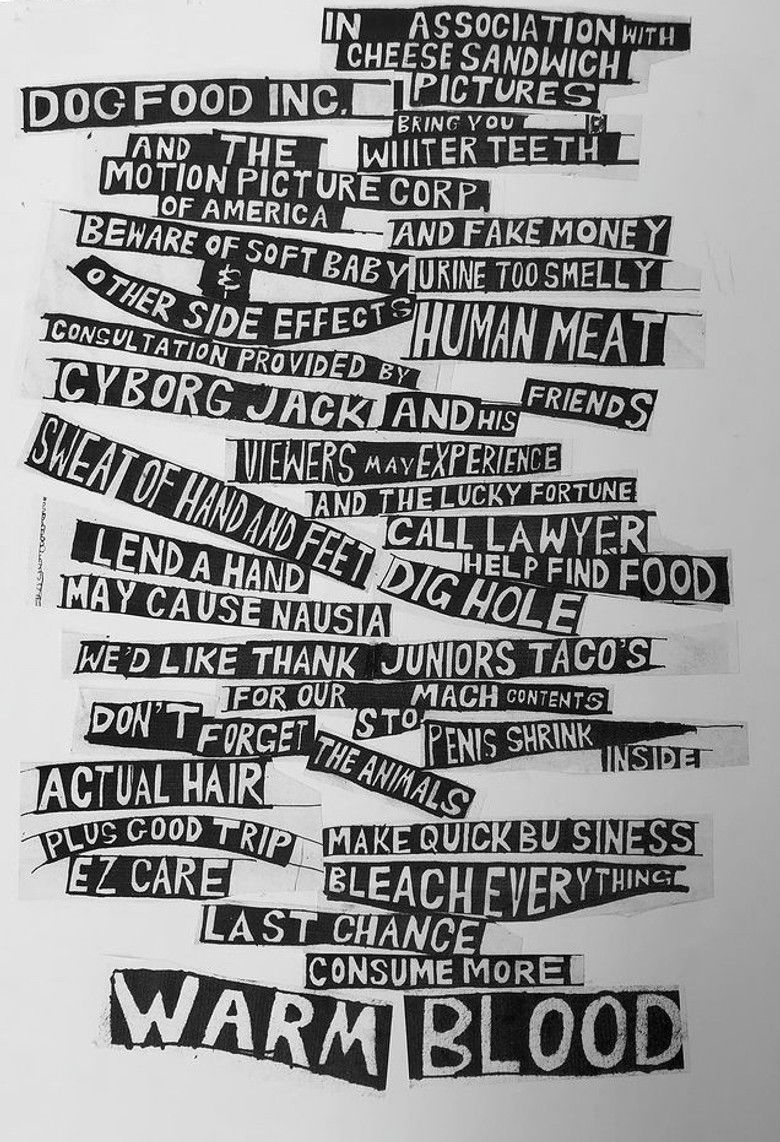 IN ASSOCIATION WITH
CHEESE SANDWICH
PICTURES
DOG FOOD INC.
BRING YOU
AND THE
WIIITER TEETH
MOTION PICTURE CORP.
OF AMERICA
BEWARE OF SOFT BABY
AND FAKE MONEY
&
URINE TOO SMELLY
OTHER SIDE EFFECTS
HUMAN MEAT
CONSULTATION PROVIDED BY
CYBORG JACK AND HIS FRIENDS
SWEAT OF HAND AND FEET
VIEWERS MAY EXPERIENCE
AND THE LUCKY FORTUNE
CALL LAWYER
LEND A HAND
HELP FIND FOOD
DIG HOLE
MAY CAUSE NAUSIA
WE'D LIKE THANK JUNIORS TACO'S
FOR OUR STO MACH CONTENTS
DON'T FORGET
THE ANIMALS
PENIS SHRINK
INSIDE
ACTUAL HAIR
PLUS GOOD TRIP
MAKE QUICK BU SINESS
EZ CARE
BLEACH EVERYTHING
LAST CHANCE
CONSUME MORE
WARM BLOOD